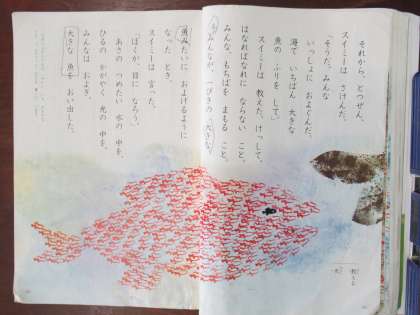 それから、とつぜん、
スイミーは さけんだ。
「そうだ。みんな
いっしょに およぐんだ。
海で いちばん 大きな
魚の ふりを して。」
スイミーは 教えた。けっして、
はなればなれに ならない こと。
みんな、もちばを まもる こと。
みんなが、一ぴきの 大きな
魚みたいに およげるように
なった とき、
スイミーは 言った。
「ぼくが、目に なろう。」
あさの つめたい 水の 中を、
ひるの かがやく 光の 中を、
みんなは およぎ、
大きな 魚を おい出した。
教える